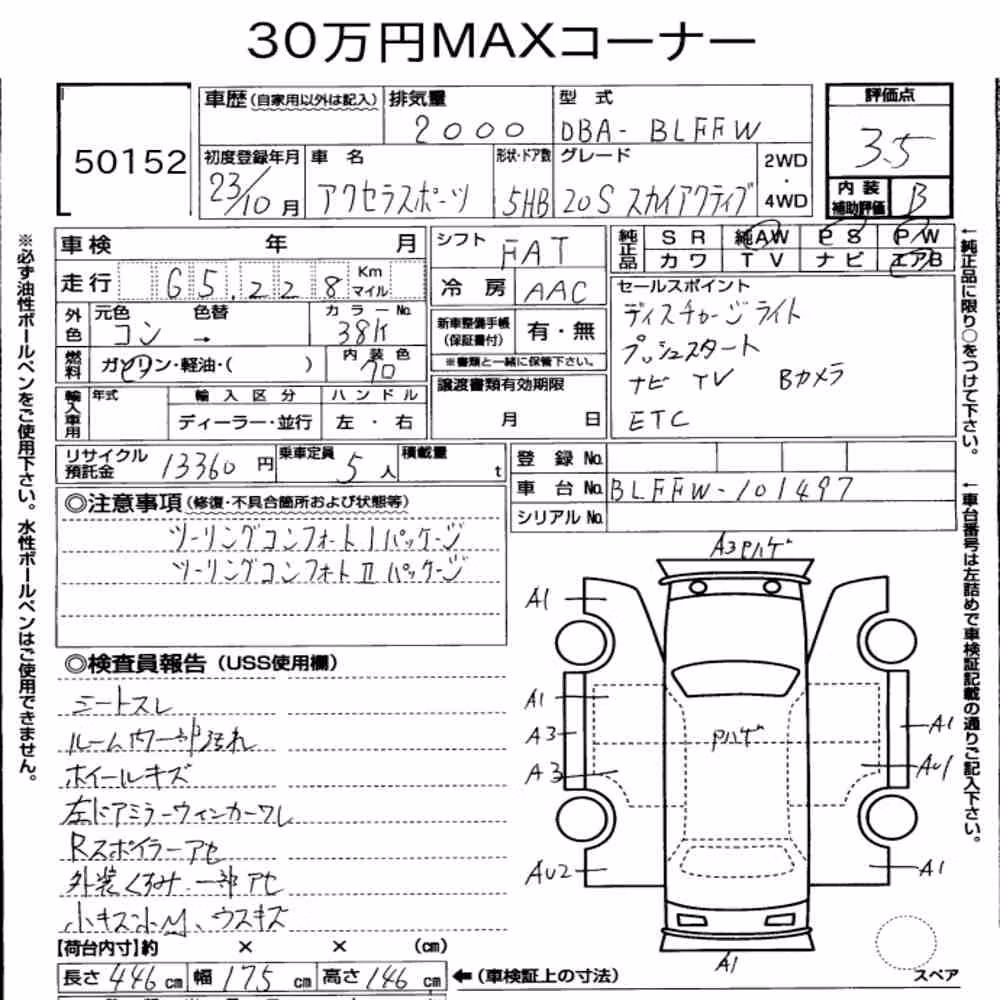 30万円MAXコーナー
50152
車歴(自家用以外は記入)
排気量
2000
型式
DBA- BLFFW
評価点
3.5
内装補助評価
B
初度登録年月
23/10月
車名
アクセラスポーツ
形状・ドア数
5HB
グレード
20S スカイアクティブ
2WD
・
4WD
車検 年 月
シフト
FAT
純正品
SR 純AW PS P/W
カワ TV ナビ エアB
走行 65.228 Km マイル
冷房
AAC
セールスポイント
ディスチャージライト
プッシュスタート
ナビ TV Bカメラ
ETC
外色
元色 色替
コン →
カラーNo.
38K
新車整備手帳
(保証書付)
有・無
※書類と一緒に保管下さい。
燃料
ガソリン・軽油・( )
内装色
クロ
譲渡書類有効期限
月 日
輸入車用
年式
輸入区分
ディーラー・並行
ハンドル
左・右
リサイクル預託金 13360円
乗車定員 5人
積載量 t
登録No.
車台No. BLFFW-101497
シリアルNo.
◎注意事項(修復・不具合箇所および状態等)
ツーリングコンフォートIパッケージ
ツーリングコンフォートIIパッケージ
◎検査員報告(USS使用欄)
シートスレ
ルーム内一部汚れ
ホイールキズ
左ドアミラーウィンカーワレ
Rスポイラーアセ
外装くすみ.一部アセ
小キズ小M、ウスキズ
【荷台内寸】約 × × (cm)
長さ446cm 幅175cm 高さ146cm
←(車検証上の寸法)
A3Pハゲ
A1
A1
A3
A3
AU2
Pハゲ
A1
AU1
A1
A1
スペア
※必ず油性ボールペンをご使用下さい。水性ボールペンはご使用できません。
←純正品に限り○をつけて下さい。
←車台番号は左詰めで車検証記載の通りご記入下さい。